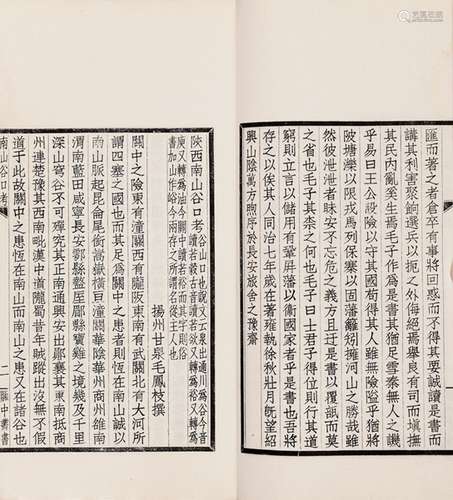 匯而著之者倉卒有事將回惑而不得其要誠讀是書而
講其利害聚餉選兵以扼之外侮絕焉舉良有司而塡撫
其民內亂奚生焉毛子作是書其猶足雪秦無人之譏
乎易曰王公設險以守其國苟得其人雖無險
陂塘濼以限戎馬列保寨以固藩籬矧擁河山之勝哉雖
然彼泄泄者昧安不忘危之義方且迂是書以覆瓿而莫
之省也毛子其柰之何也毛子曰士君子得位則行其道
窮則立言以儲有用屏藩以衞國家者書也吾將
存之以俟其人同治七年歲在著雍執徐秋壯月旣望紹
興山陰萬方煦序於長安旅舍之豫齋
陝西南山谷口考 谷山口也說文云泉出通川為谷今音
揚州甘泉毛鳳枝撰
關中之險東有潼關西有隴阪東南有武關北有大河所
謂四塞之國也而其足爲關中之患者則恆在南山誠以
南山脈起崑侖尾銜嵩嶽橫亘潼關華陰華州商州雒南
渭南藍田咸寧長安鄠縣盩厔郿縣寶雞之境幾及千里
深山窮谷不可殫究其正南通興安出鄖襄其東南抵商
州連楚豫其西南毗漢中道隴蜀昔年賊蹤出沒無不假
道于此故關中之患恆在南山而南山之患又在諸谷也
南山谷口考 一 關中叢書